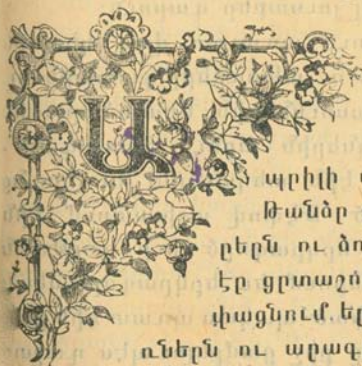 Ա
պրիլի
Թանձր
րերն ու ձո
էր ցրտաշո
փացնում. ել
ուներն ու արագ